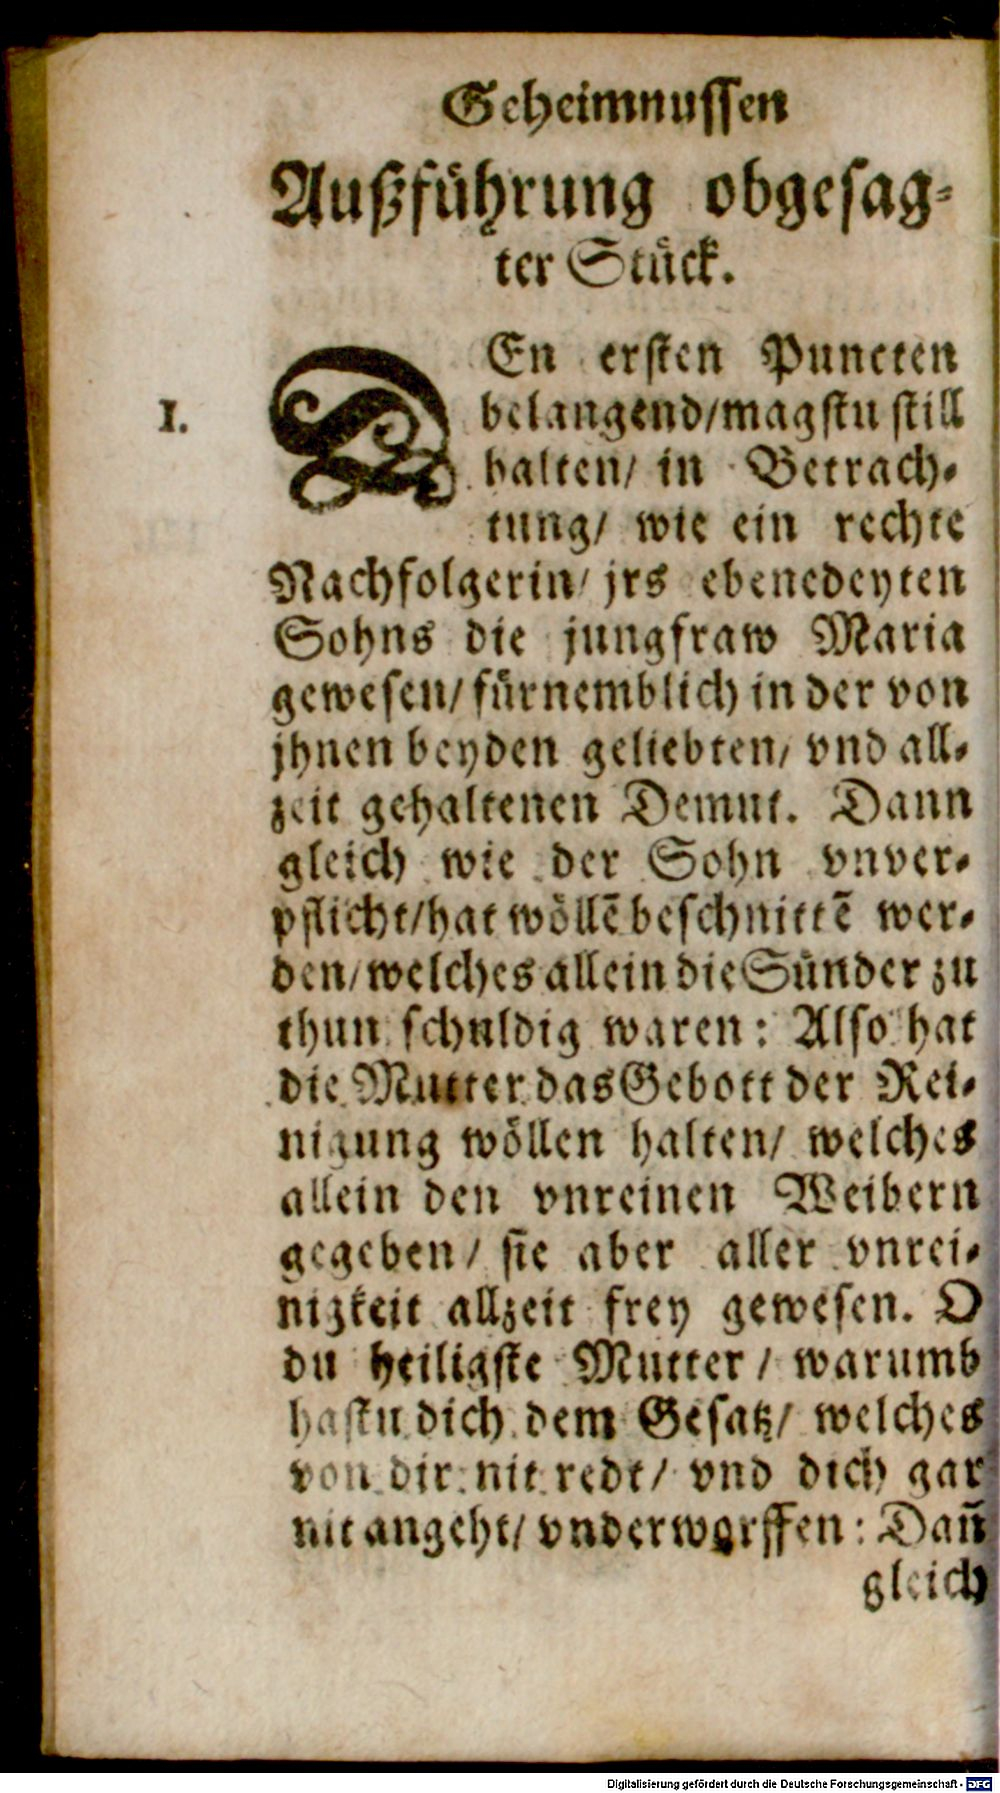 Geheimnussen
Außführung obgesag-
ter Stück.
I.
DEn ersten Puncten
belangend/magstu still
halten/ in Betrach-
tung/ wie ein rechte
Nachfolgerin/ jrs ebenedeyten
Sohns die jungfraw Maria
gewesen/fürnemblich in der von
jhnen beyden geliebten/ vnd all-
zeit gehaltenen Demut. Dann
gleich wie der Sohn vnver-
pflicht/hat wöllē beschnittē wer-
den/welches allein die Sünder zu
thun schuldig waren: Also hat
die Mutter das Gebott der Rei-
nigung wöllen halten/ welches
allein den vnreinen Weibern
gegeben/ sie aber aller vnrei-
nigkeit allzeit frey gewesen. O
du heiligste Mutter/ warumb
hastu dich dem Gesatz/ welches
von dir nit redt/ vnd dich gar
nit angeht/ vnderworffen: Dañ
gleich
Digitalisierung gefördert durch die Deutsche Forschungsgemeinschaft - DFG